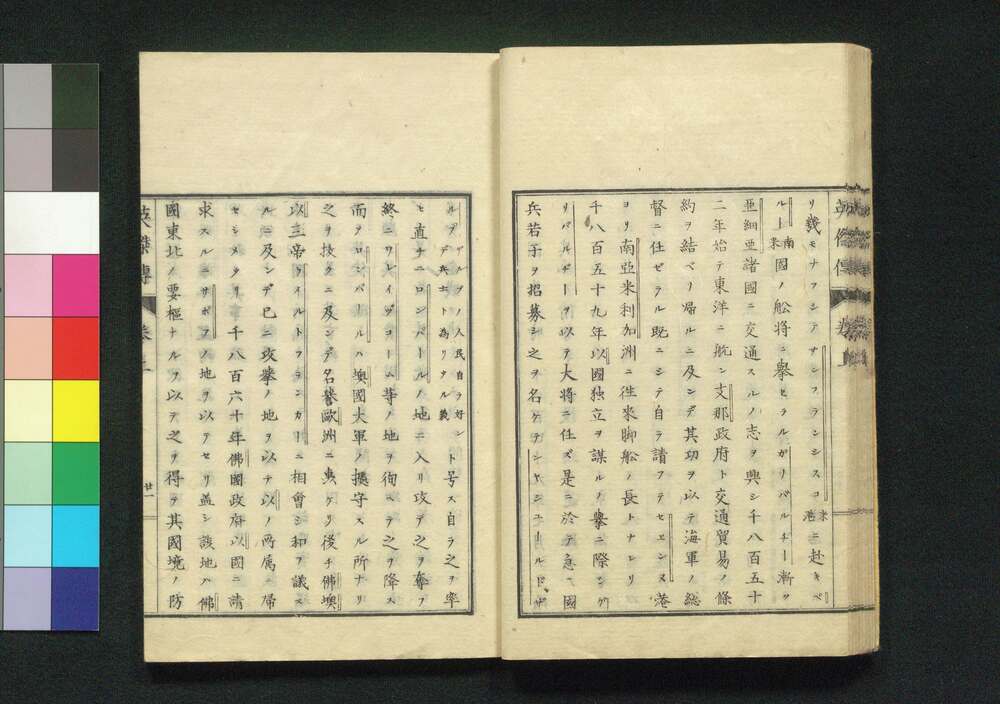 リ幾モナフシテサンフランシスコ米港ニ赴キペ
ルー上南米國ノ舩将ニ擧セラルガリバルヂー漸ク
亜細亜諸國ニ交通スルノ志ヲ興シ千八百五十
二年始テ東洋ニ航シ支那政府ト交通貿易ノ條
約ヲ結ベリ帰ルニ及ンデ其功ヲ以テ海軍ノ総
督ニ任ゼラル既ニシテ自ラ請フテセエンヌ港
ヨリ南亞米利加洲ニ往來脚舩ノ長トナレリ
千八百五十九年以國独立ヲ謀ルノ擧ニ際シガ
リバルヂーヲ以テ大将ニ任ズ是ニ於テ急ニ國
兵若干ヲ招募シ之ヲ名ケテシャシユールドザ
ルプアルプノ人民自ラ好ンデ兵士ト為リタル義ト号ス自ラ之ヲ率
ヒ直チニロンバールノ地ニ入リ攻テ之ヲ奪フ
終ニワレイヅコーム等ノ地ヲ徇ヘテ之ヲ降ス
而ヲロンバールハ墺國大軍ノ擴守スル所ナリ
之ヲ抜クニ及ンデ名誉歐洲ニ夷ケリ後チ佛墺
以三帝ウィルトフランカニ相會シ和ヲ議ス
ルニ及ンデ已ニ攻擧ノ地ヲ以テ以ノ両属ニ帰
セシメタリ千八百六十年佛國政府以國ニ請
求スルニサボアノ地ヲ以テセリ盖シ該地ハ佛
國東北ノ要樞ナルヲ以テ之ヲ得テ其國境ノ防
英傑傳
廿一